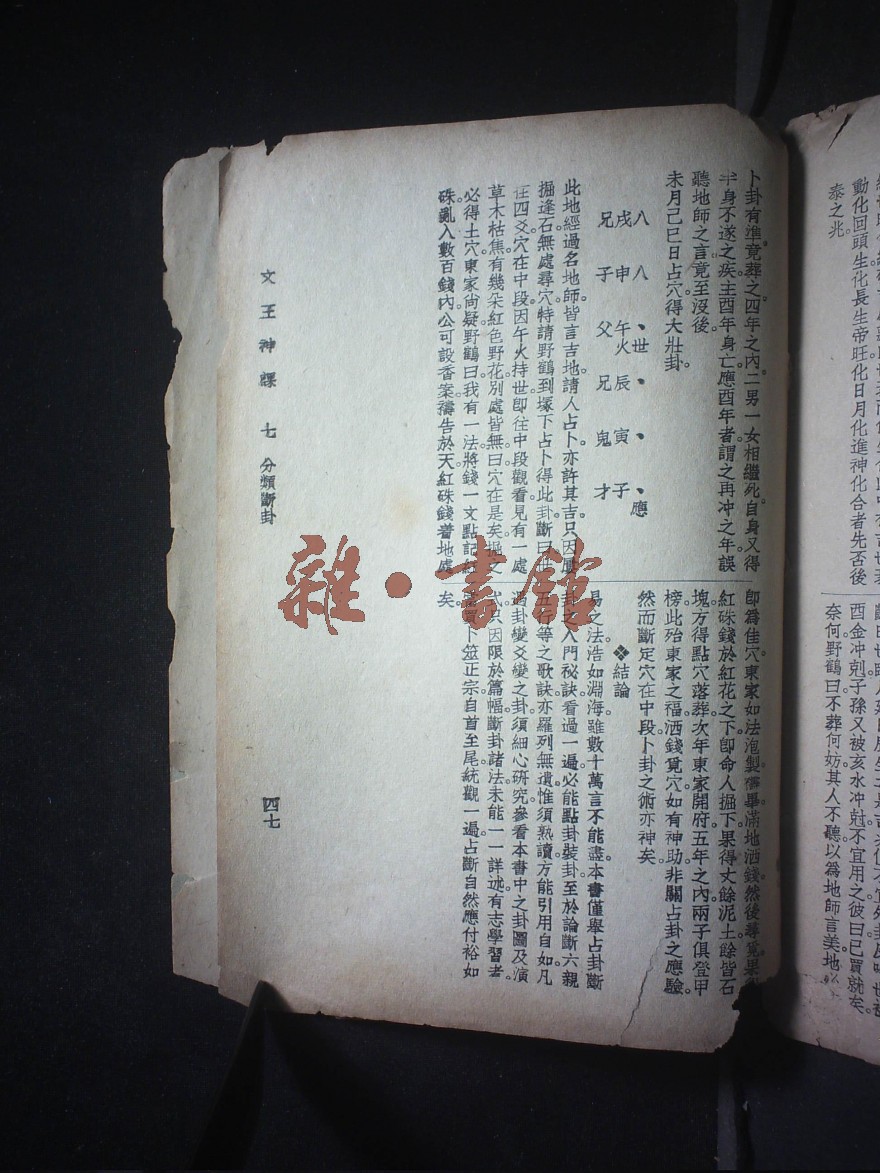 卜卦有準。竟葬之。四年之內。二男一女相繼死。自身又得
半身不遂之疾。主酉年身亡。應酉年者。謂之再冲之年。誤
聽地師之言。竟至沒後。
未月己巳日占穴得大壯卦。
八 八 、世 、 、 、應
戌 申 午火 辰 寅 子
兄 子 父 兄 鬼 才
此地經過名地師。皆言吉地。請人占卜。亦許其吉。只因
掘逢石。無處尋穴。特請野鶴到塚下占卜。得此卦。斷曰。世
在四爻。穴在中段。因午火持世。即往中段觀看。見有一處
草木枯焦。有幾朵紅色野花。別處皆無。曰穴在是矣。掘之
必得土穴。東家尙疑。野鶴曰。我有一法。將錢一文點記紅
硃。亂入數百錢內。公可設香案禱告於天。紅硃錢着地處
即爲佳穴。東家如法泡製。禱畢滿地洒錢。然後尋覓。果
紅硃錢於紅花之下。即命人掘下。果得丈餘泥土。餘皆石
塊。方得點穴落葬。次年東家開府。五年之內。兩子俱登甲
榜。此殆東家之福。洒錢覓穴。如有神助。非關占卦之應驗。
然而斷定穴在中段。卜卦之術亦神矣。
❖結論
易之法。浩如淵海。雖數十萬言不能盡。本書僅舉占卦斷
卦之入門祕訣。看過一遍。必能點卦裝卦。至於論斷六親
五行等之歌訣。亦羅列無遺。惟須熟讀。方能引用自如。凡
遇卦變爻變之卦。須細心硏究。參看本書中之卦圖及演
式。只因限於篇幅。斷卦諸法。未能一一詳述。有志學習者。
買卜筮正宗。自首至尾統觀一遍。占斷自然應付裕如
矣。
文王神課 七 分類斷卦
四七
動化回頭生。化長生帝旺。化日月。化進神。化合者。先否後
泰之兆。
酉金冲剋。子孫又被亥水冲尅。不宜用之。彼曰已買就矣。
奈何。野鶴曰。不葬何妨。其人不聽。以爲地師言美地
雜·書館